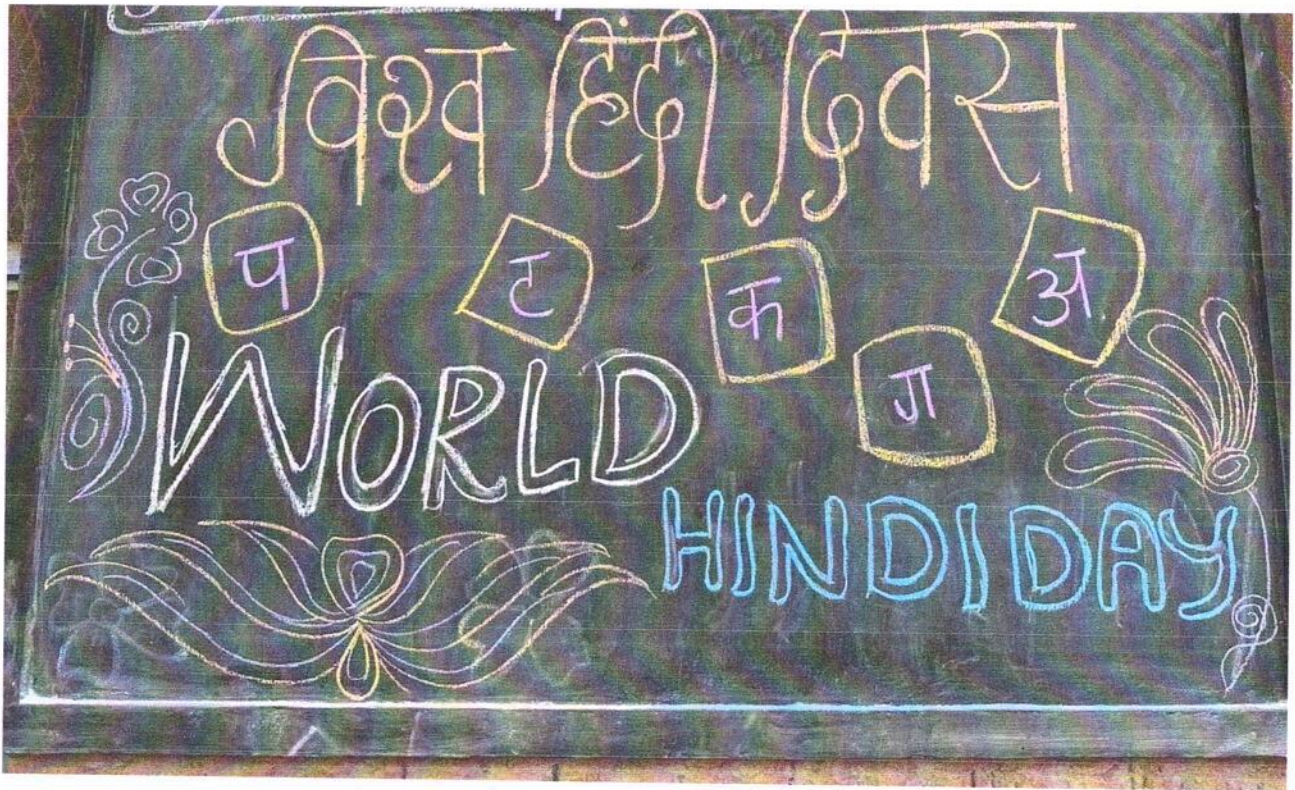 विश्व हिंदी दिवस
प ट क अ
ग
WORLD
HINDI DAY